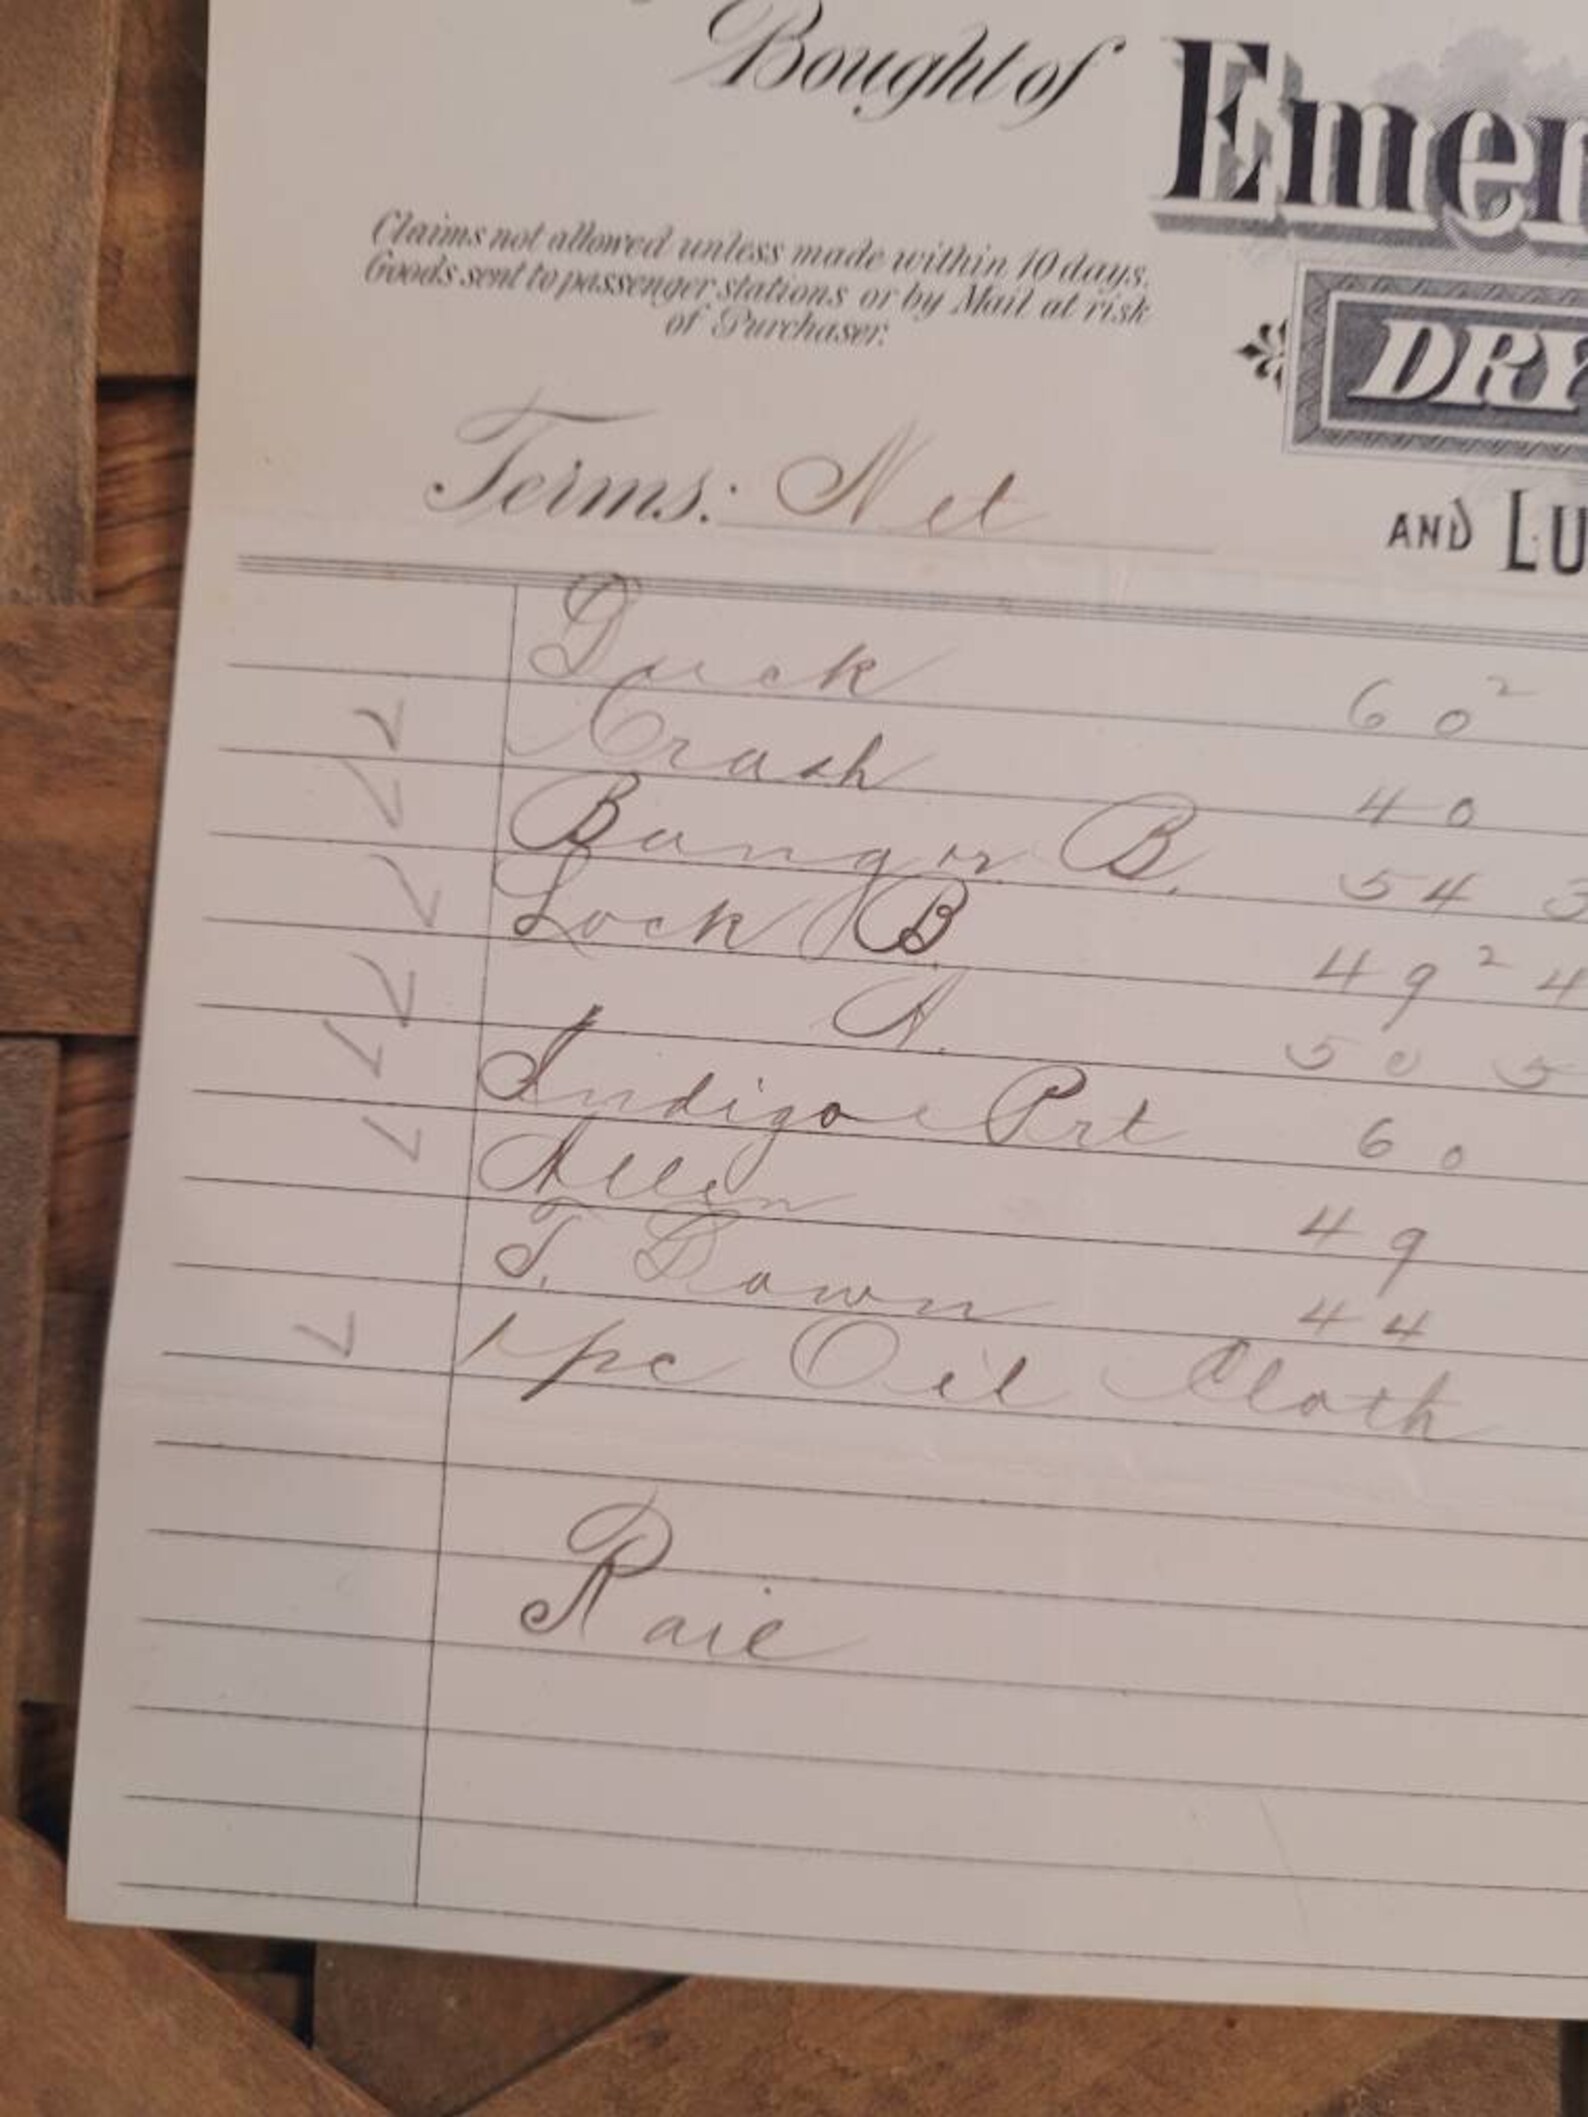 Bought of Emer
Claims not allowed unless made within 10 days.
Goods sent to passenger stations or by Mail at risk
of Purchaser.
DRY
Terms: Net
AND LU
Duck 60²
Crash 40
Bangor B. 54 3
Lock B. 49² 4
A. 50 5
Indigo Prt 60
Allen 49
T. Lawn 44
1 pc Oil Cloth